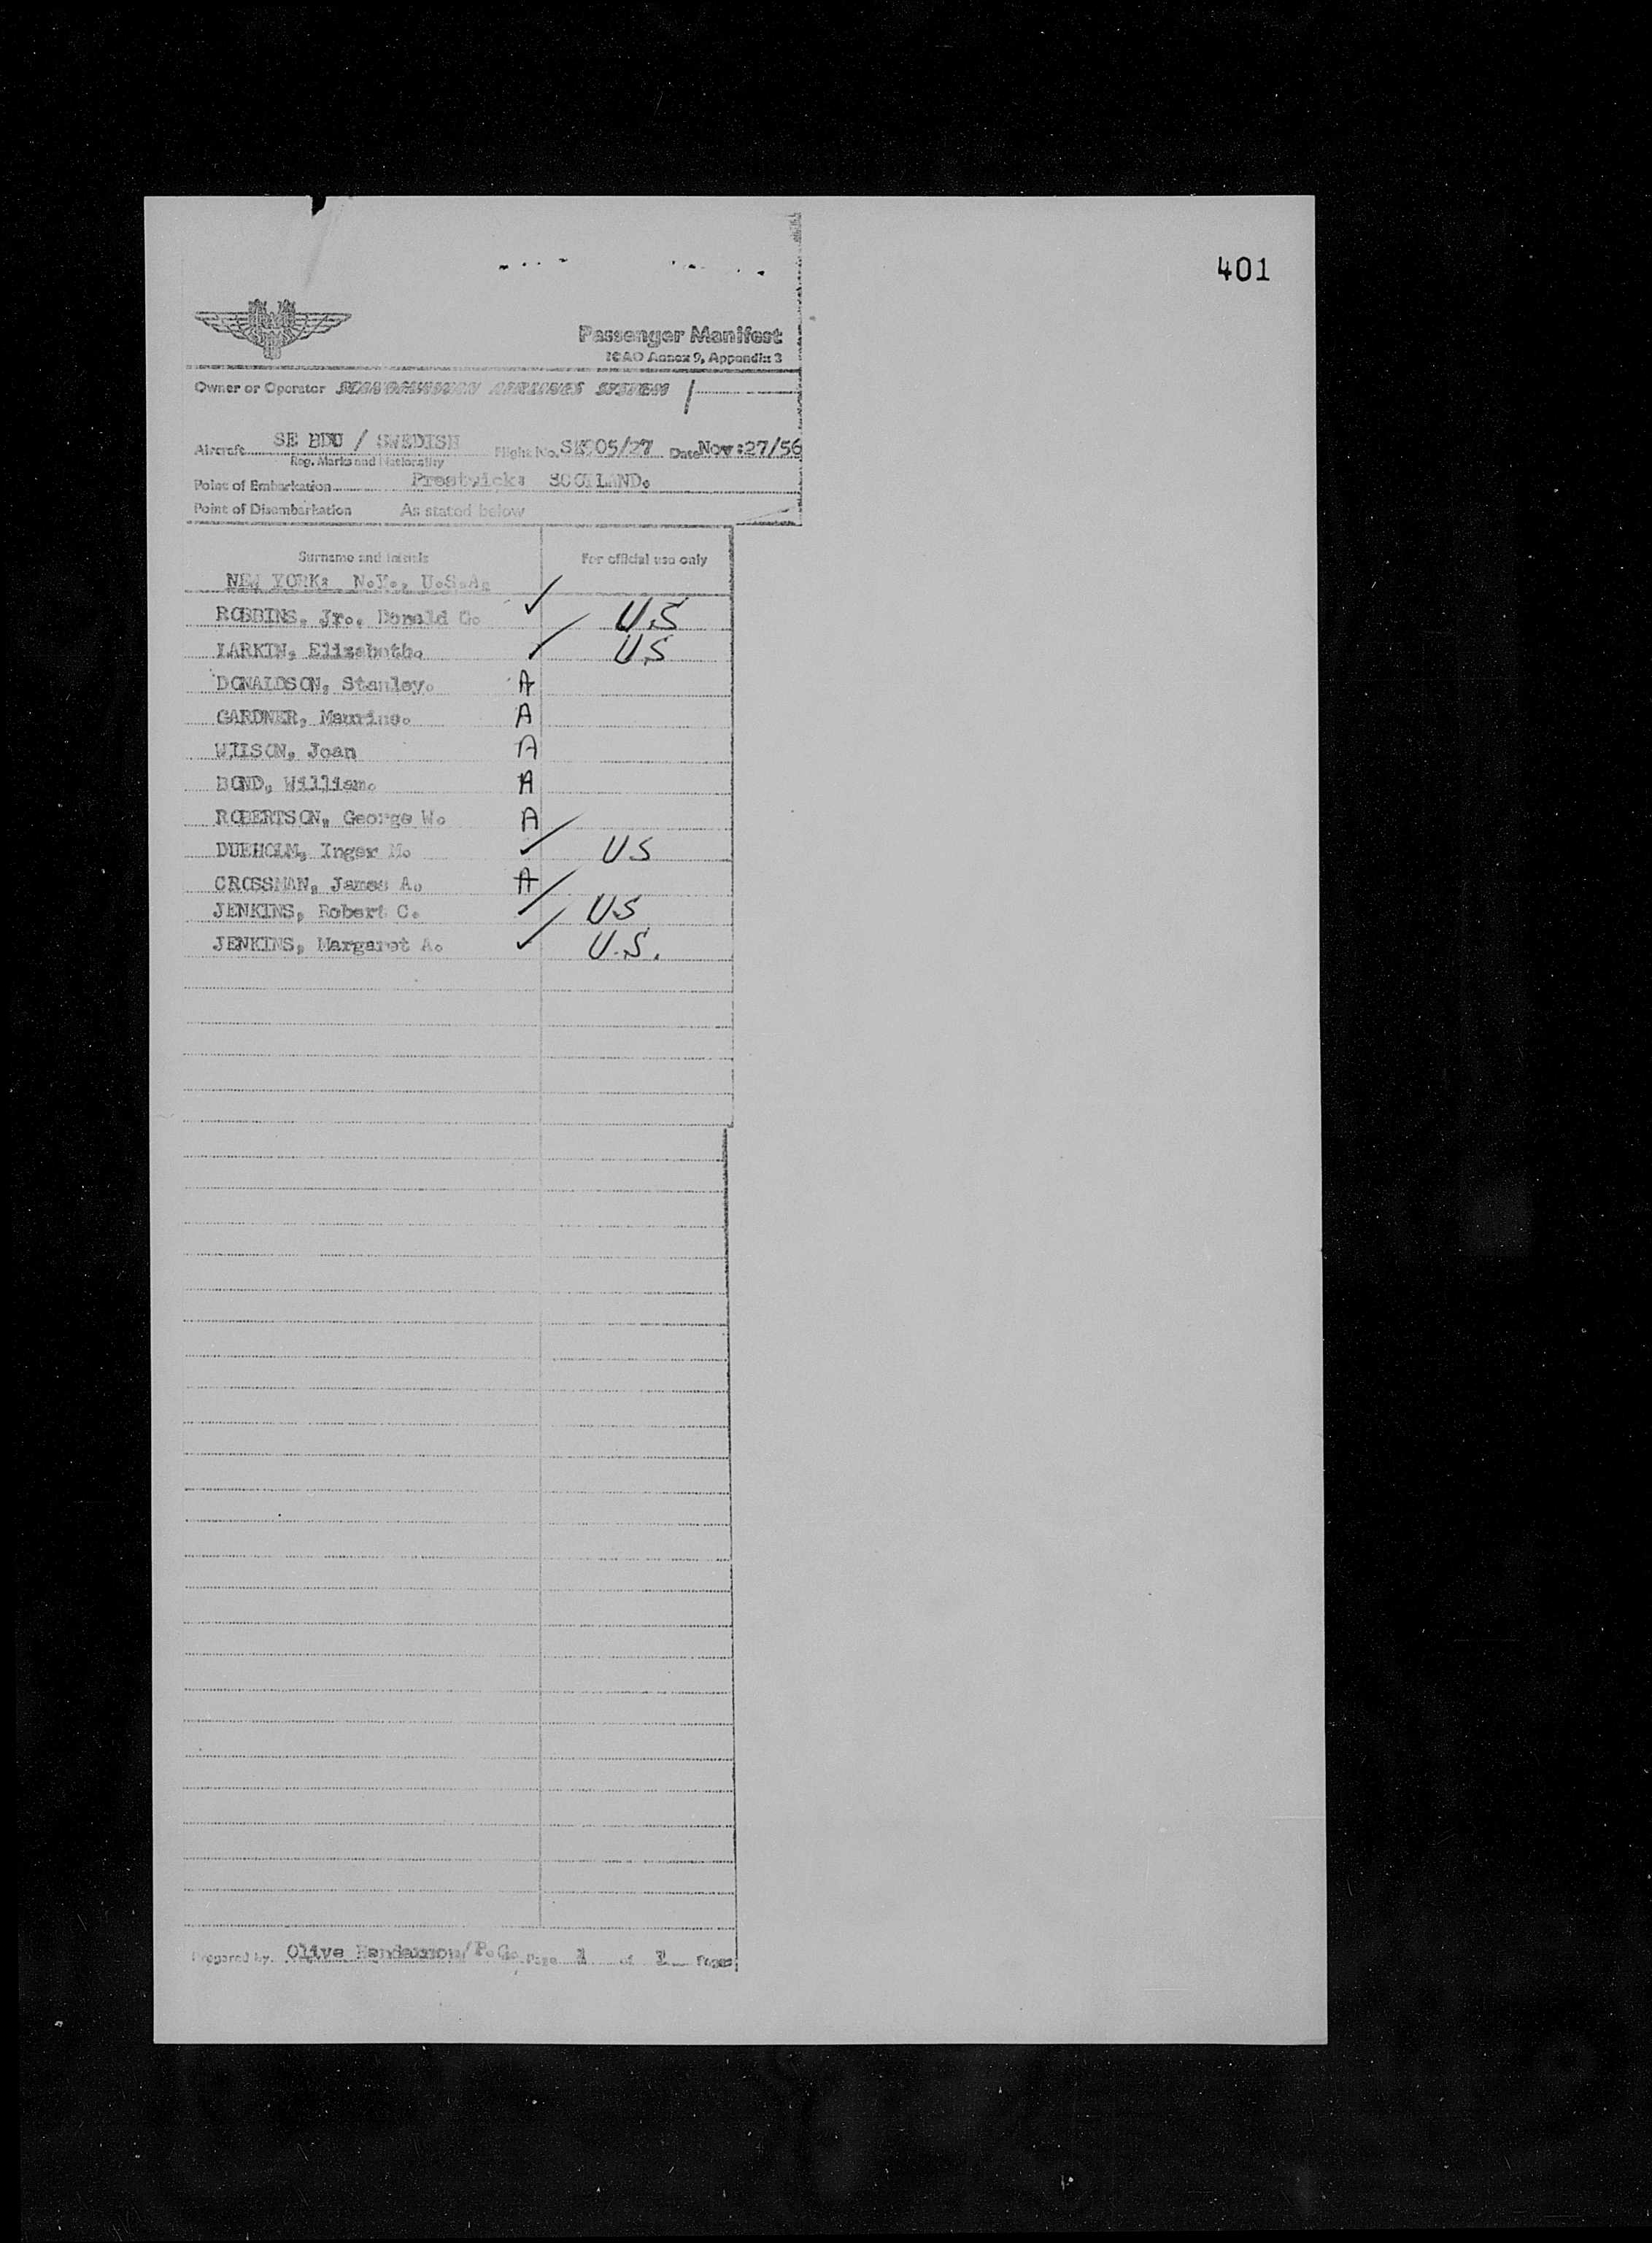 401
Passenger Manifest
ICAO Annex 9, Appendix 3
Owner or Operator SCANDINAVIAN AIRLINES SYSTEM
Aircraft SE BDU / SWEDISH Flight No. SK905/27 Date Nov:27/56
Reg. Marks and Nationality
Point of Embarkation Prestwick: SCOTLAND.
Point of Disembarkation As stated below
Surname and Initials For official use only
NEW YORK: N.Y., U.S.A.
ROBBINS, Jr., Donald G. ✓ U.S
LARKIN, Elizabeth. ✓ U.S
DONALDSON, Stanley. A
GARDNER, Maurine. A
WILSON, Joan A
BOND, William. A
ROBERTSON, George W. A
DUEHOLM, Inger M. ✓ U.S
CROSSMAN, James A. A
JENKINS, Robert C. ✓ U.S
JENKINS, Margaret A. ✓ U.S.
Prepared by. Olive Henderson/P.C. Page 1 of 1 Pages